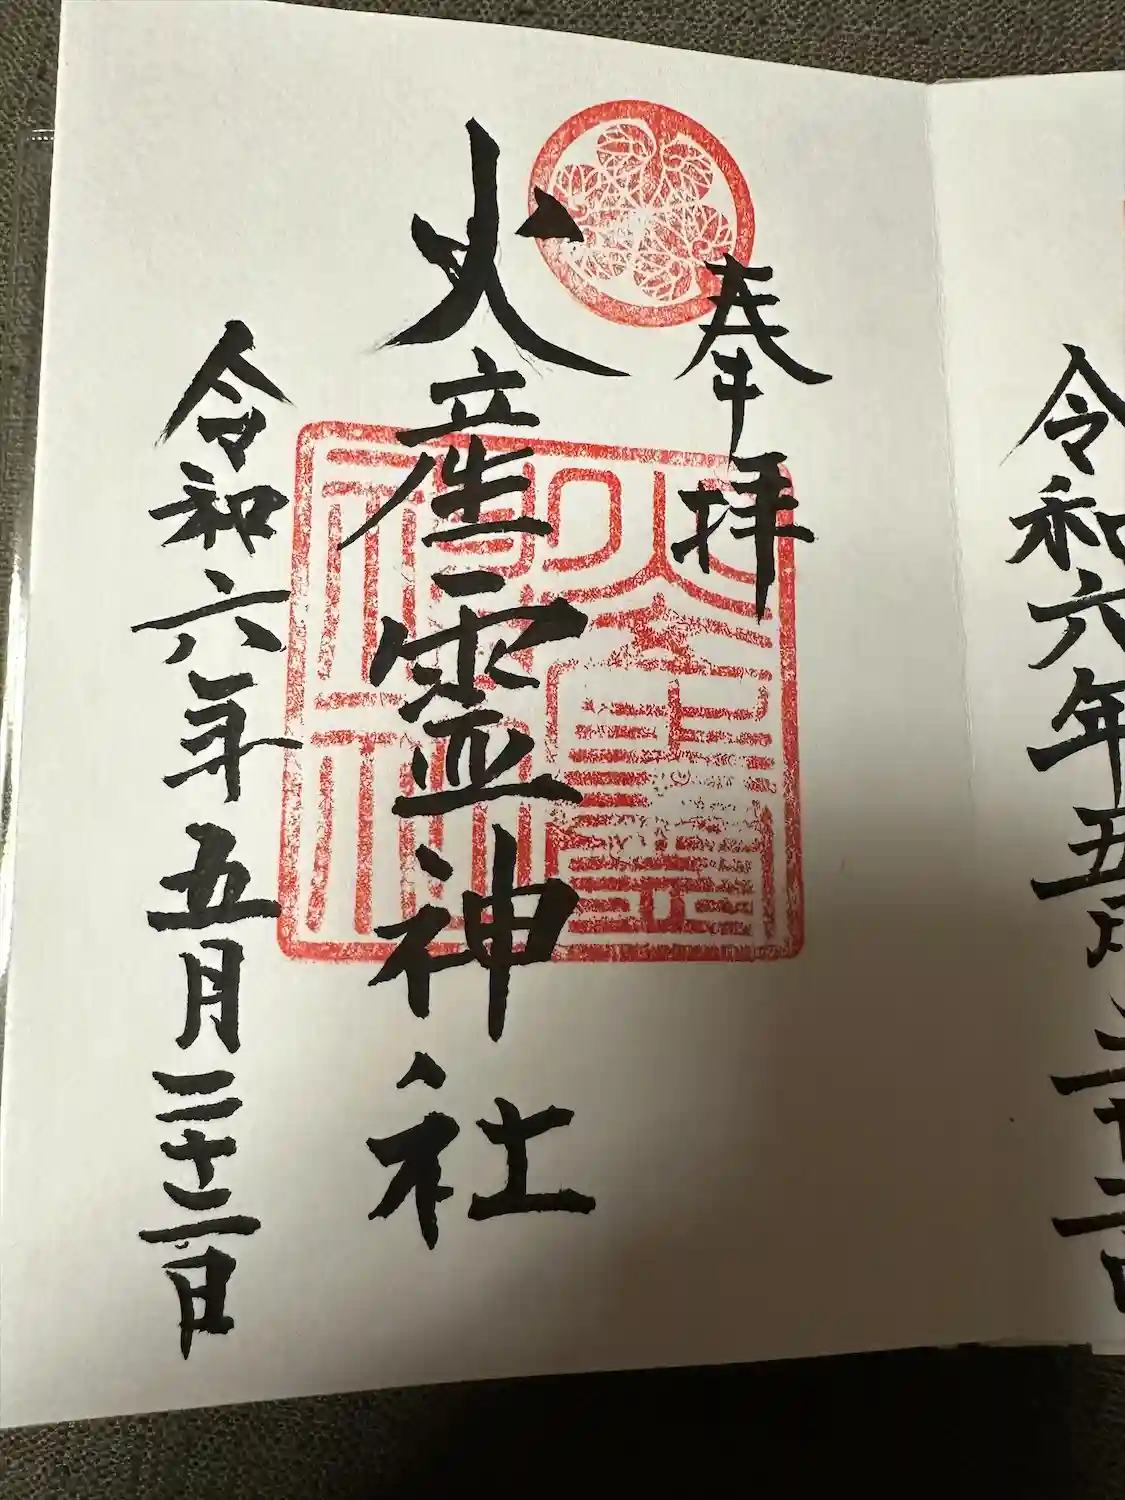 令和六年五月二十二日
奉拝
火産霊神社
火産霊
神社
令和六年五月二十二日